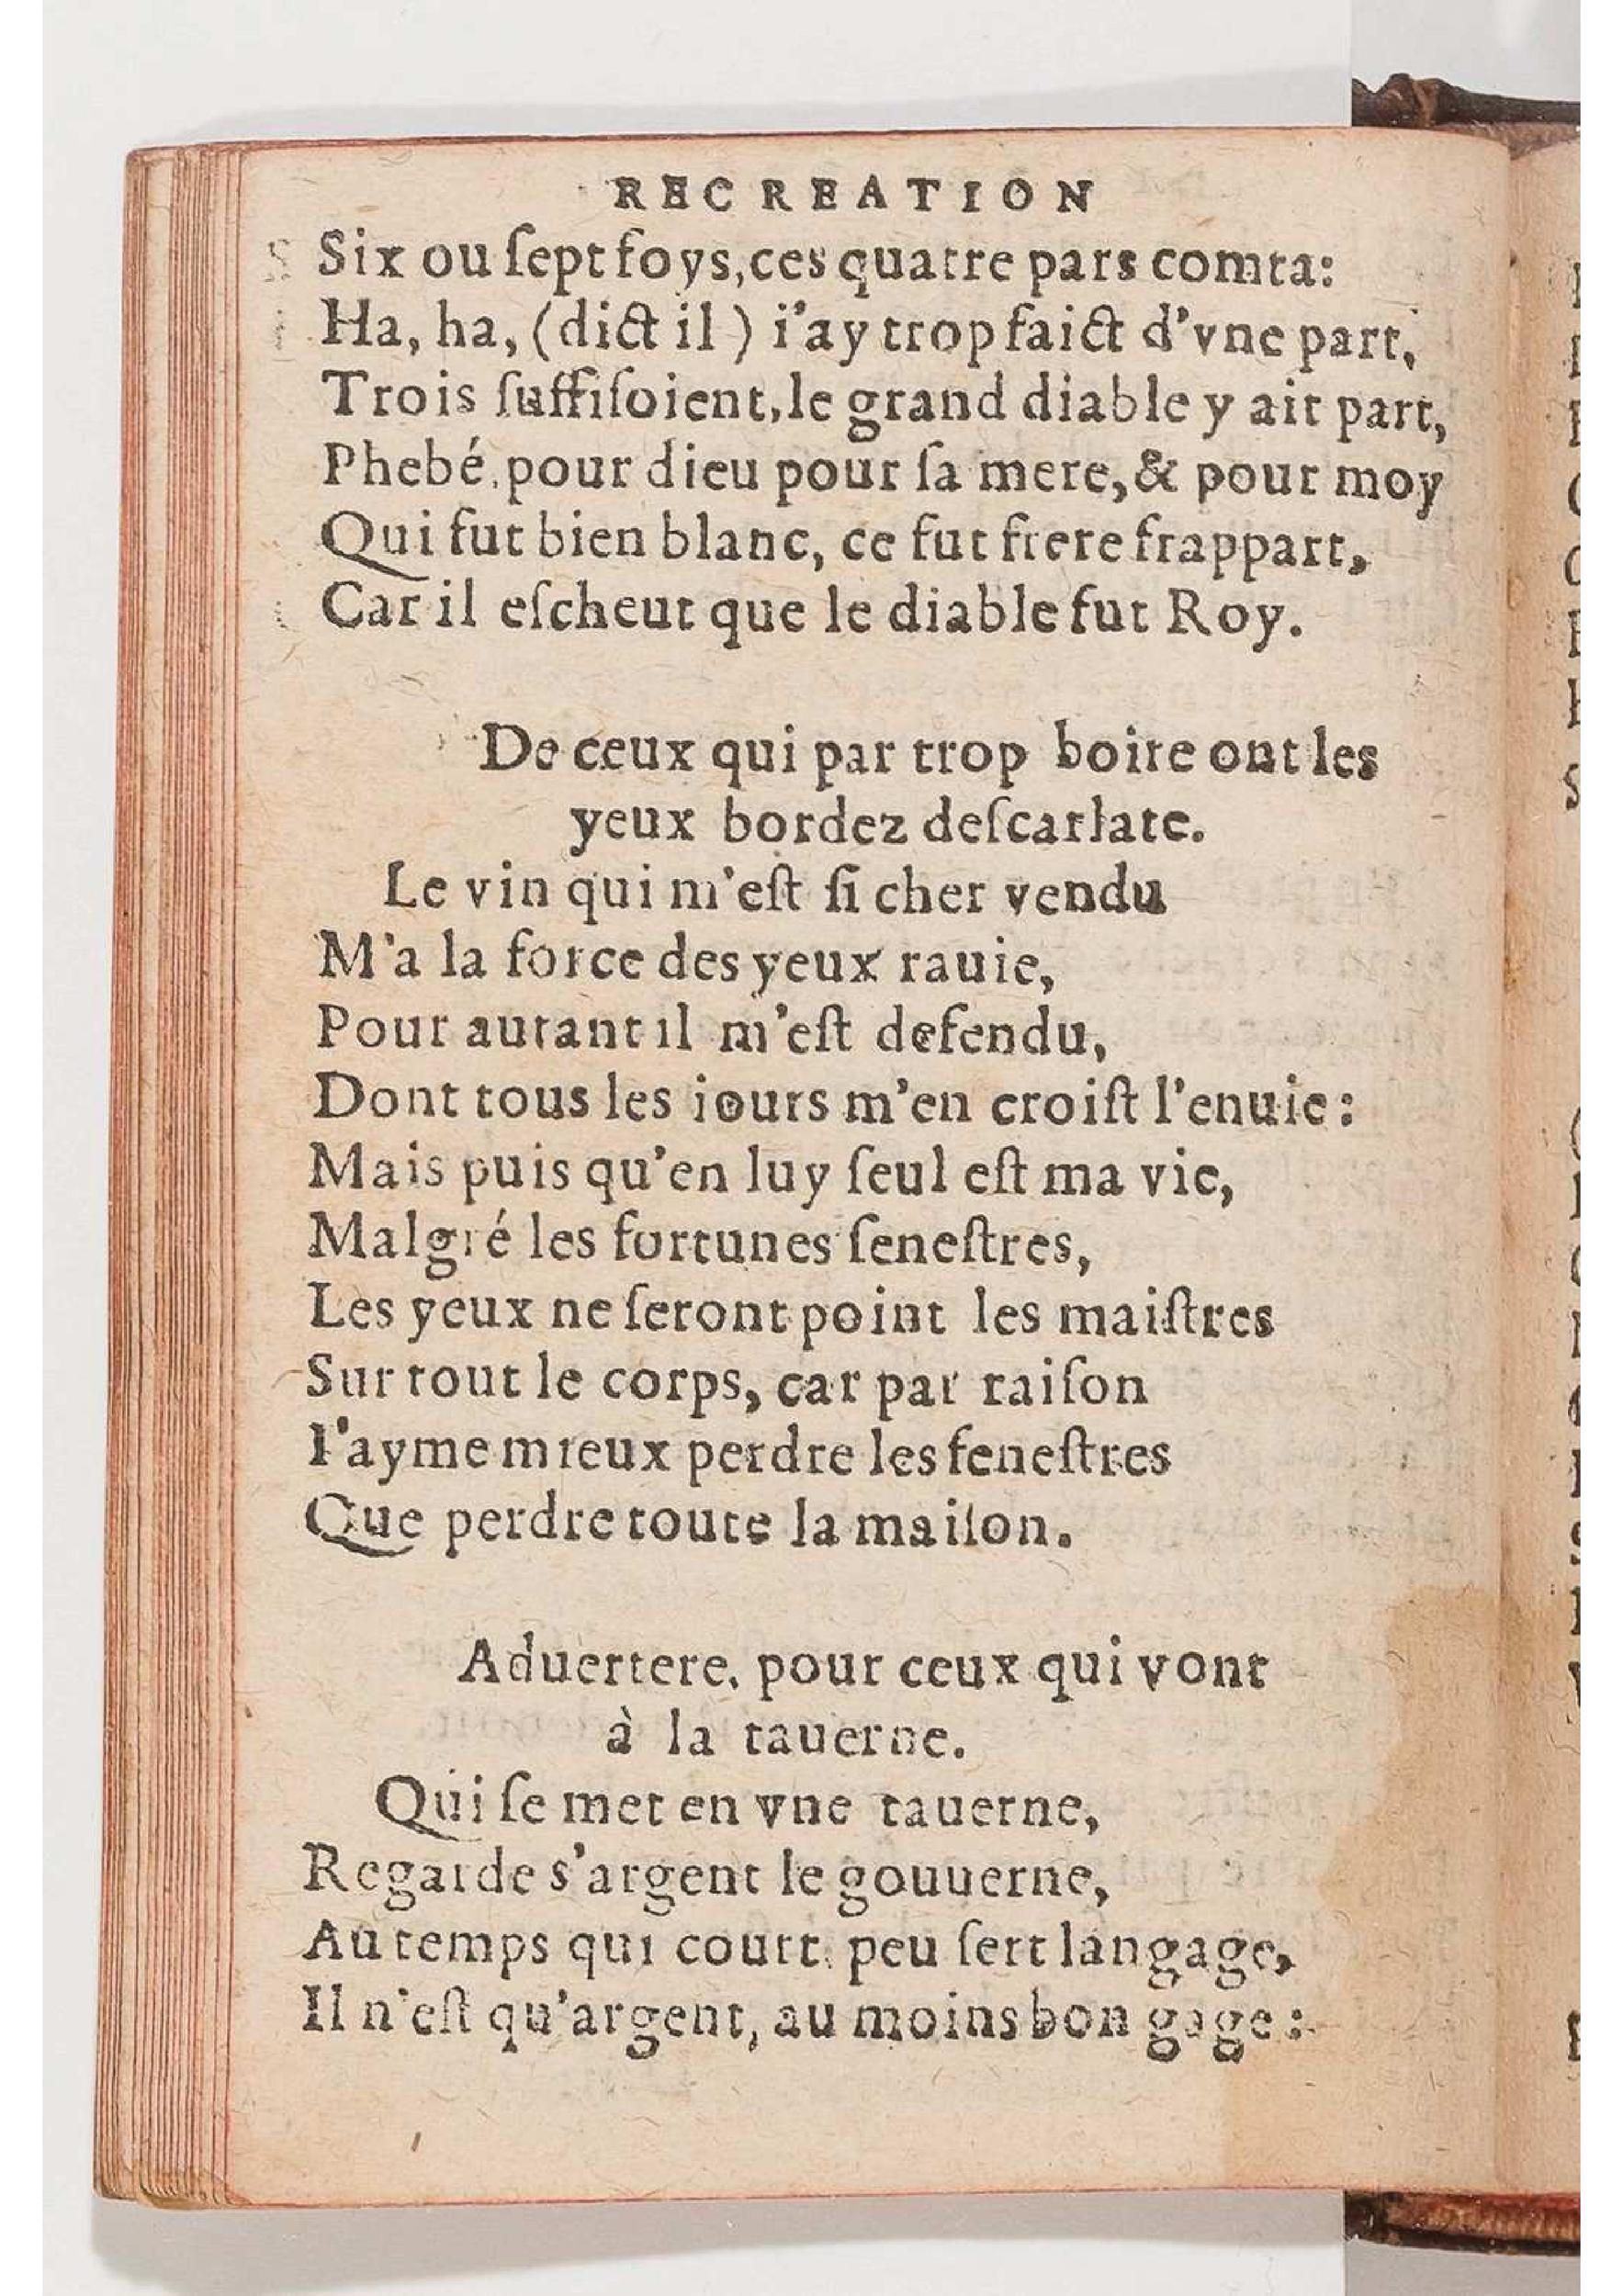 RECREATION
Six ou ſept foys, ces quatre pars comta:
Ha, ha, (dict il) i'ay trop faict d'vne part,
Trois ſuffiſoient, le grand diable y ait part,
Phebé, pour dieu pour ſa mere, & pour moy
Qui fut bien blanc, ce fut frere frappart,
Car il eſcheut que le diable fut Roy.
De ceux qui par trop boire ont les
yeux bordez deſcarlate.
Le vin qui m'eſt ſi cher vendu
M'a la force des yeux rauie,
Pour autant il m'eſt defendu,
Dont tous les iours m'en croiſt l'enuie:
Mais puis qu'en luy ſeul eſt ma vie,
Malgré les fortunes ſeneſtres,
Les yeux ne ſeront point les maiſtres
Sur tout le corps, car par raiſon
I'ayme mieux perdre les feneſtres
Que perdre toute la maiſon.
Aduertere, pour ceux qui vont
à la tauerne.
Qui ſe met en vne tauerne,
Regarde s'argent le gouuerne,
Au temps qui court, peu ſert langage,
Il n'eſt qu'argent, au moins bon gage: